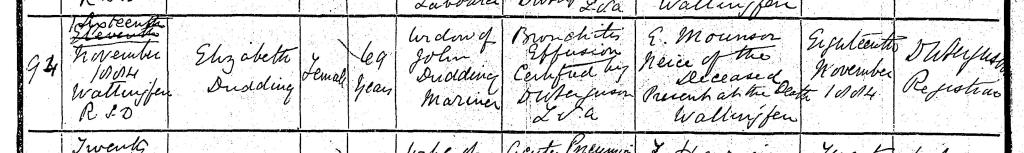 R S D
Wallingfen
94
Sixteenth
Eleventh
November
1884
Wallingfen
R S D
Elizabeth
Dudding
Female
69
Years
Widow of
John
Dudding
Mariner
Bronchitis
Effusion
Certified by
DW Ferguson
E. Mounsor
Neice of the
Deceased
Present at the Death
Wallingfen
Eighteenth
November
1884
DW Ferguson
Registrar
Twenty